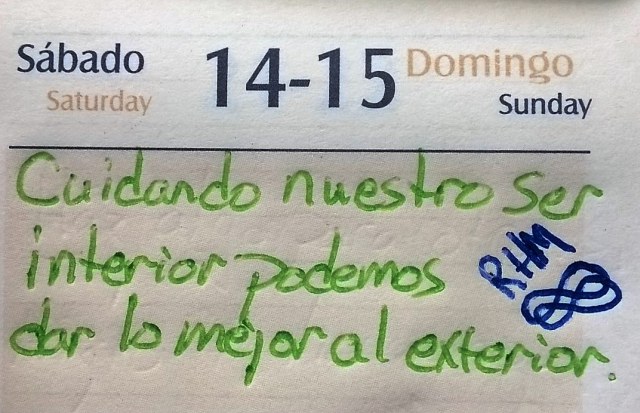 Sábado 14-15 Domingo
Saturday Sunday
Cuidando nuestro ser
interior podemos RHM
dar lo mejor al exterior.